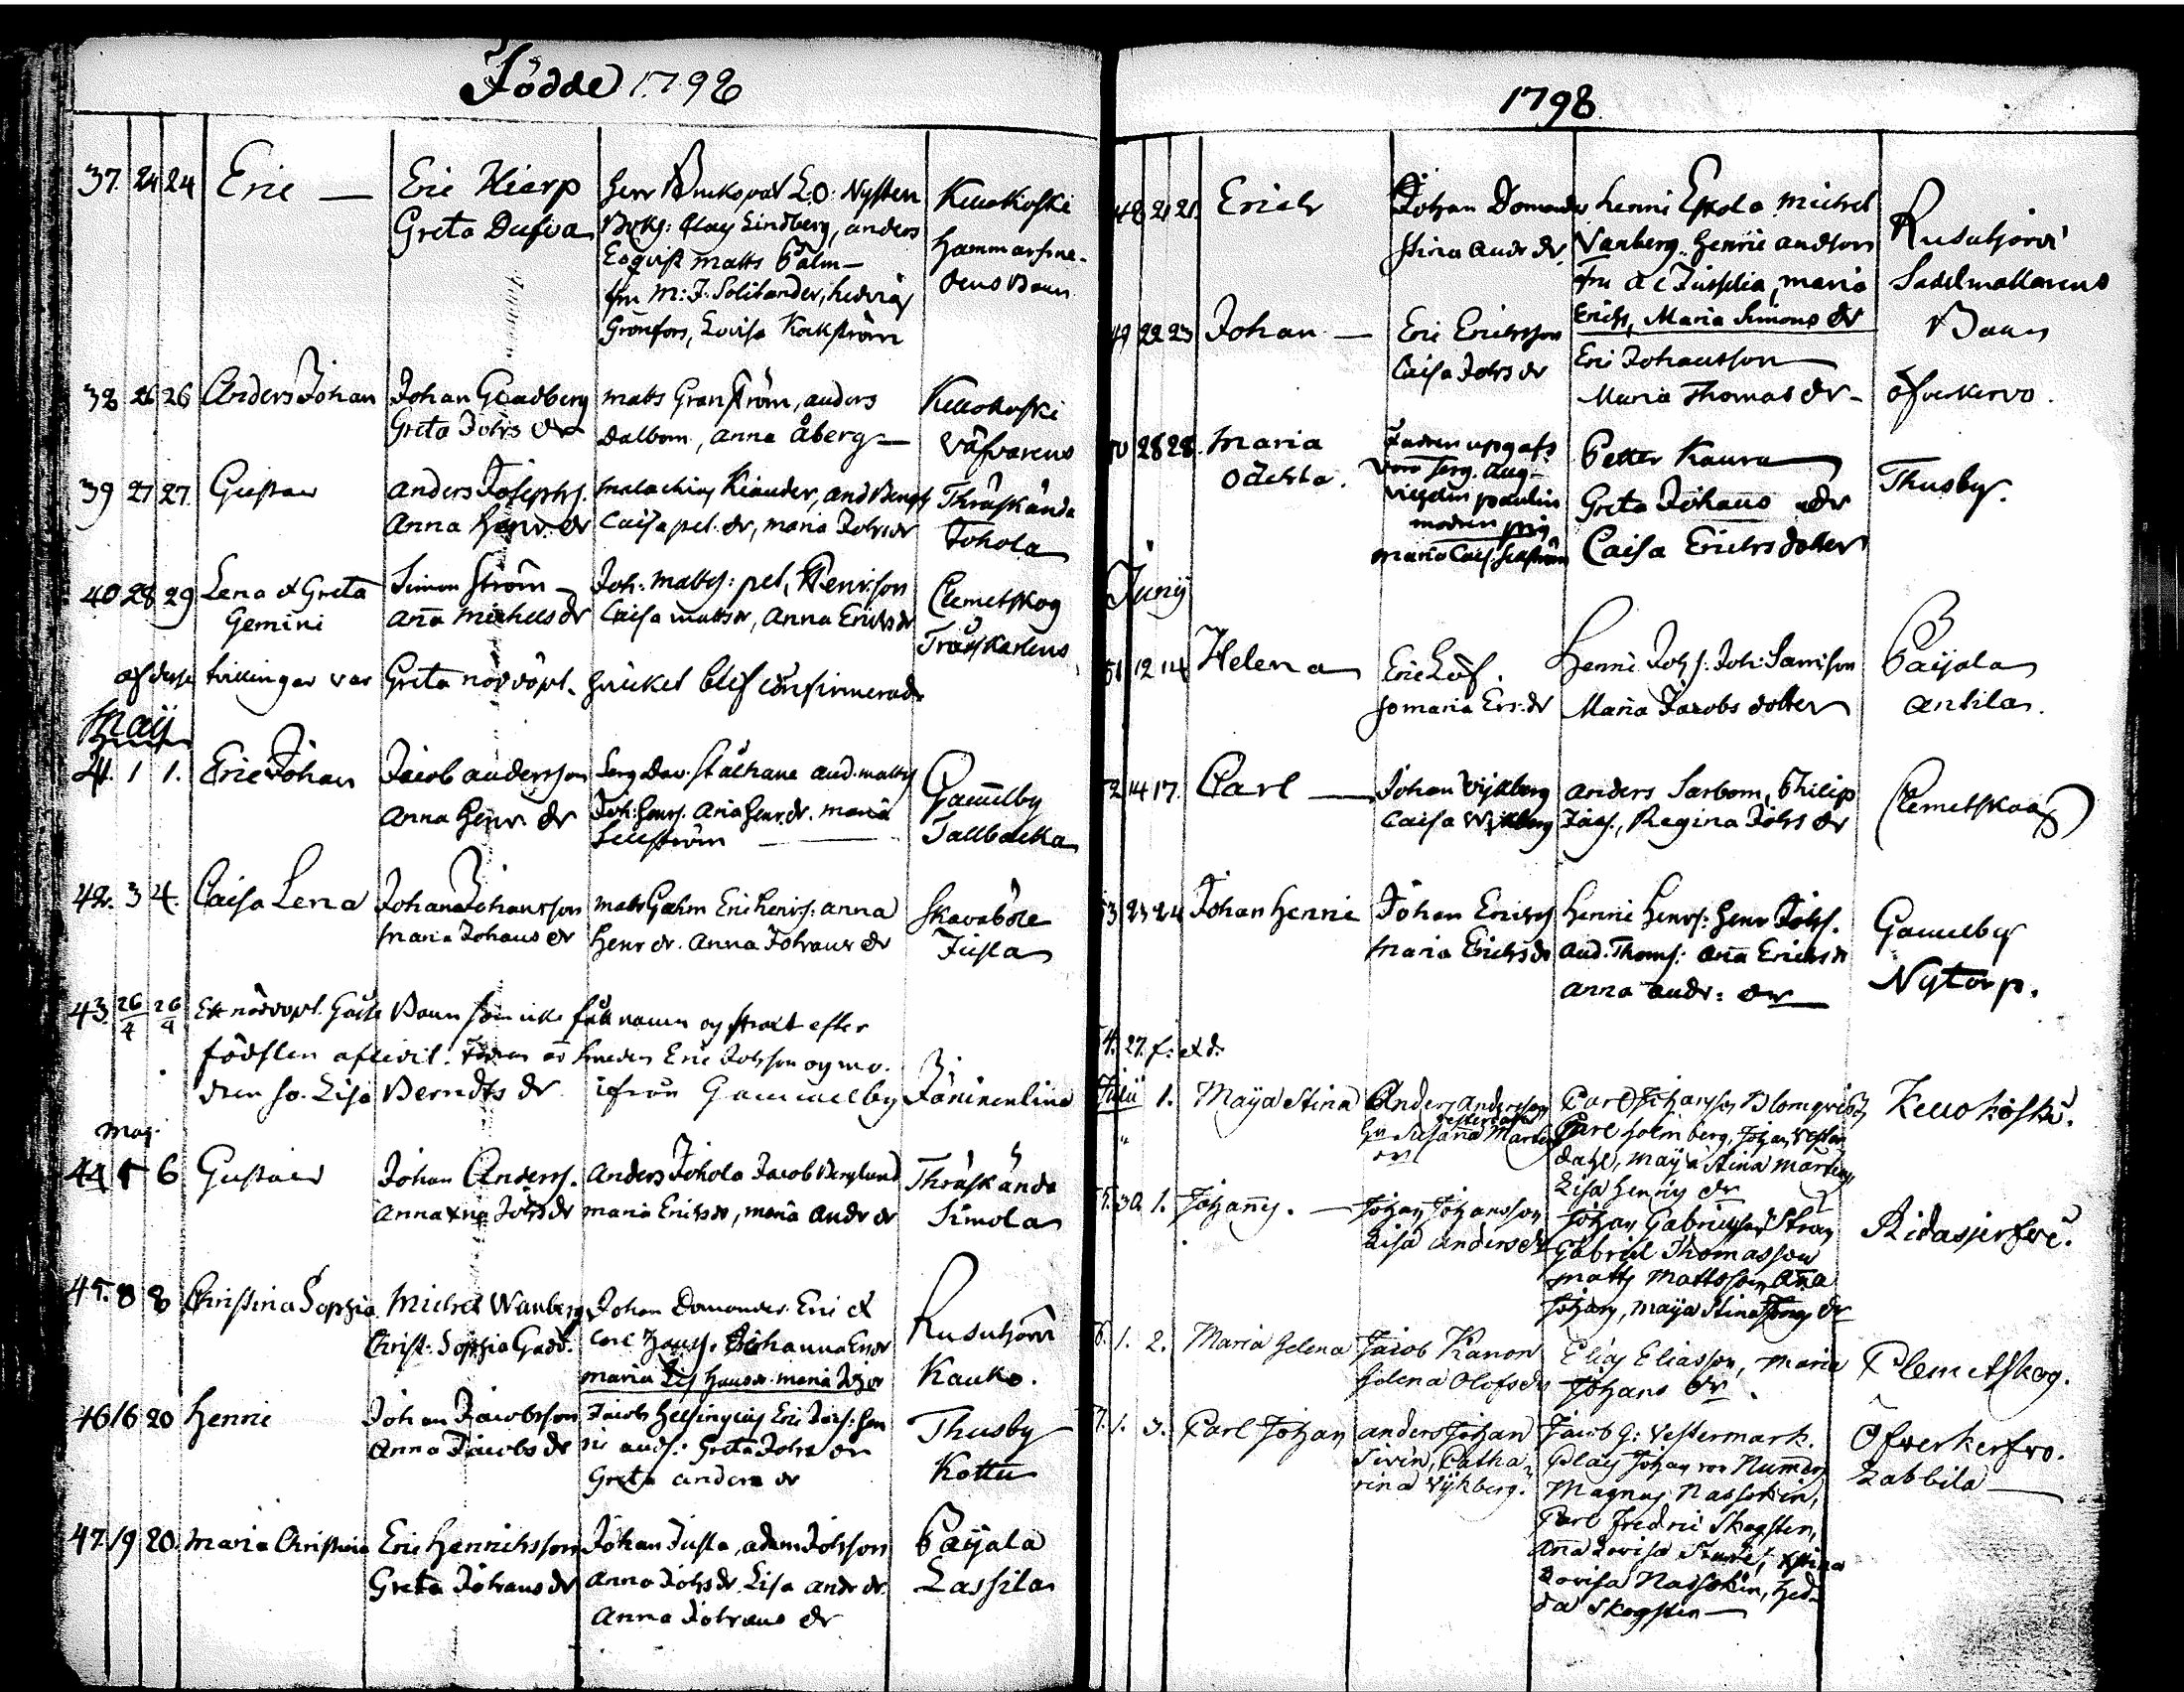 Födde 1798
37. 24 24 Eric — Eric Hierp Herr Bruks pat. E.O. Nysten Kellokoski
Greta Dufva Clas Lindberg, anders Hammarsme-
Matts Palm — dens Barn
fru M: J. Solitander, hedvig
Grönfors, Lovisa
38 26 26 Anders Johan Johan Grandberg matts Granström, anders Kellokoski
Greta Johs dr Dalbom, anna Åberg — Väfvarens
39 27 27. Gustav anders Josephs. malachias Kiander, and Bengts Thräskända
Anna Henr dr Caisa pet. dr, maria Johs dr Jokola
40 28 29 Lena & Greta Simon Ström — Joh: Matts: pet, Henr:son Clemetskog
Gemini aña Michels dr Caisa matts dr, Anna Erichs dr
af desse tvillingar var Greta nöddöpt. hvilket blef confirmerade
Maij
41. 1 1. Eric Johan Jacob andersson Serg Dav. Stålhane and. matts Gamelby
Anna Henr. dr Joh: Henrs. Aña Henr. dr. maria Tallbacka
Sellström —
42. 3 4. Caisa Lena Johan Johansson matts Gahm Eric Henrs. anna Skavaböle
Maria Johans dr Henr dr. Anna Johans dr Jusla
43. 26/4 26/4 Ett nöddöpt Barn som icke fått namn og strax efter
födslen aflevit. Fadren är smeden Eric Johsson og mo-
dren h:o Lisa Berndts dr ifrån Gammelby Jäninenlinna
Maj.
44 5 6 Gustav Johan Anders. anders Jokola Jacob Berglund Thräskända
Anna Xna Johs dr maria Erichs dr, maria andr dr Simola
45. 8 8 Christina Sophia Michel Wanberg Johan Domander Eric &
Christ: Sophia Gadd. Carl Hans. Johanna Ers dr Rusutjärvi
maria Hans dr. maria Kauko.
46 16 20 Henric Johan Jacobsson Jacob Helsingius Eric Jacs: Hen Thusby
Anna Jacobs dr ric ands: Greta Johs dr Kottu
Greta anders dr
47. 19 20. Maria Christina Eric Henrichsson Johan Jusla, adam Johsson Paijala
Greta Johans dr Anna Johs dr. Lisa andr dr. Lassila
Anna Johans dr
1798.
48 21 21. Erich Johan Domander Henric Epola Michel Rusutjärvi
Stina Andr dr. Vanberg. Henric andsson Sadelmakarens
maria Barn
Erichs, Maria Simons dr
49 22 23 Johan — Eric Ericsson Eric Johansson — Öfverkervo.
Caisa Johs dr Maria Thomas dr —
50 28 28. Maria Fadren upgafs Petter Kaura — Thusby.
oächta. vara Serg. Aug- Greta Johans dr
modren pig Caisa Erichs dotter
Maria Cais
Junij
51 12 14 Helena Eric Löf. Henric Johs:. Joh: Samson Paijala
h:o maria Ers. dr Maria Jacobs dotter Antila.
52 14 17. Carl — Johan Wijkberg anders Sarbom, Philip Clemetskog
Caisa Wijkberg Jacs., Regina Johs dr
53 23 24 Johan Henric Johan Erichs Henric Henrs: Henr Johs. Gamelby
Maria Erichs dr And. Thoms: aña Erichs dr Nytorp.
Anna andr: dr
54. 27. f: &d.
Julii 1. Maija Stina Anders andersson Carl Johansson Blomqvist, Kellokoski.
Susaña Martens Carl Holmberg, Johan Vester
dr. dahl, Maija Stina Martens
Lisa Henrics dr
55. 30. 1. Johañs. — Johan Johansson Johan Gabrielsson Strang Ridasjerfvi.
Lisa anders dr Gabriel Thomasson
Matts Mattsson, aña
Johans, Maija Stina dr
56. 1. 2. Maria Helena Jacob Kanon Elias Eliasson, Maria Clemetskog.
Helena Olofs dr Johans dr.
57. 1. 3. Carl Johan anders Johan Jacob G: Vestermark. Öfverkerfvo.
Sivén, Catha- Clas Johan von Numers Labbila —
rina Vijkberg. Magnus Nassokin,
Carl Fredric Skogsten,
aña Lovisa Xstina
Lovisa Nassokin, Hed-
da Skogsten —